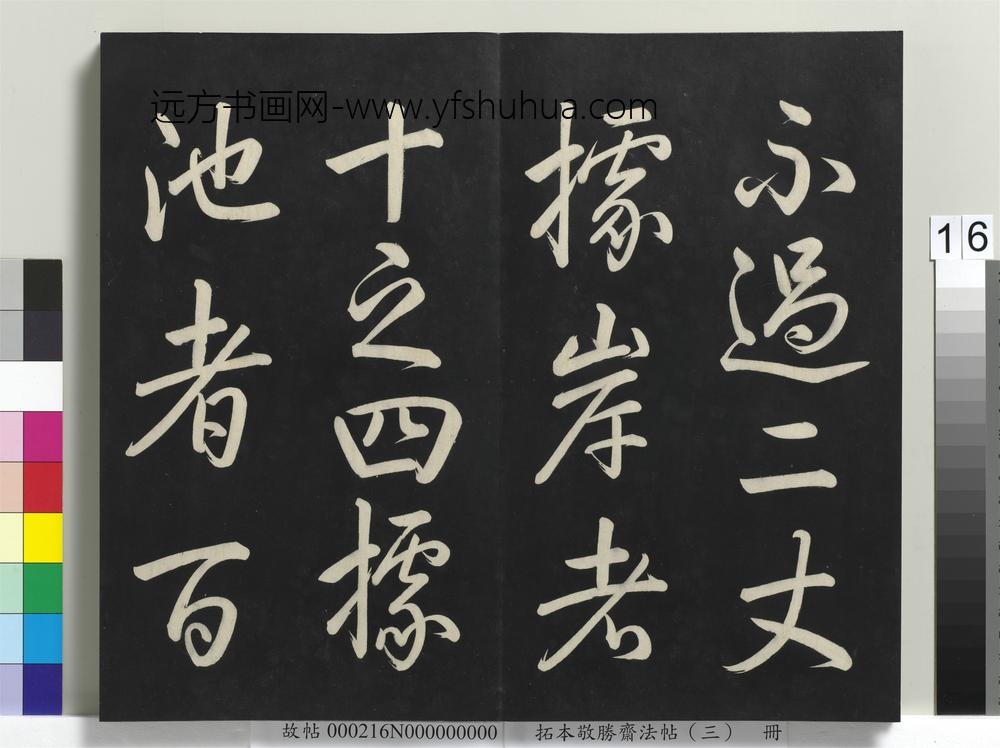 远方书画网-www.yfshuhua.com
不過二丈
據岸者
十之四據
池者百
16
故帖 000216N000000000 拓本敬勝齋法帖(三) 冊